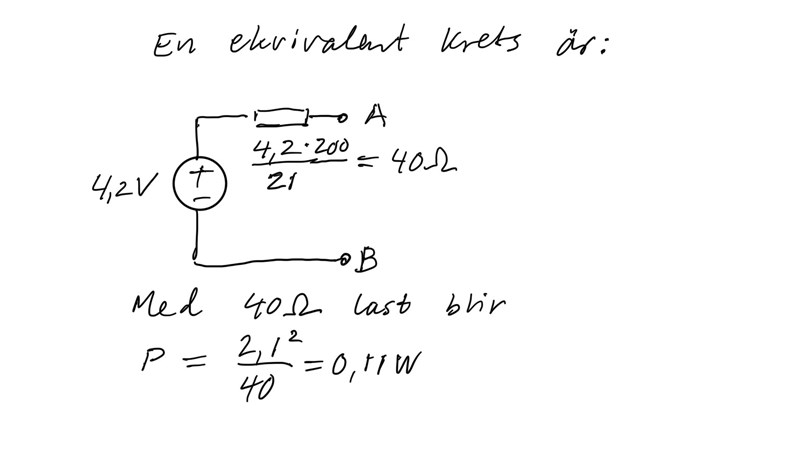 En ekvivalent krets är:
A
4,2·200
4,2V + = 40Ω
21
-
B
Med 40Ω last blir
P = 2,1² / 40 = 0,11W